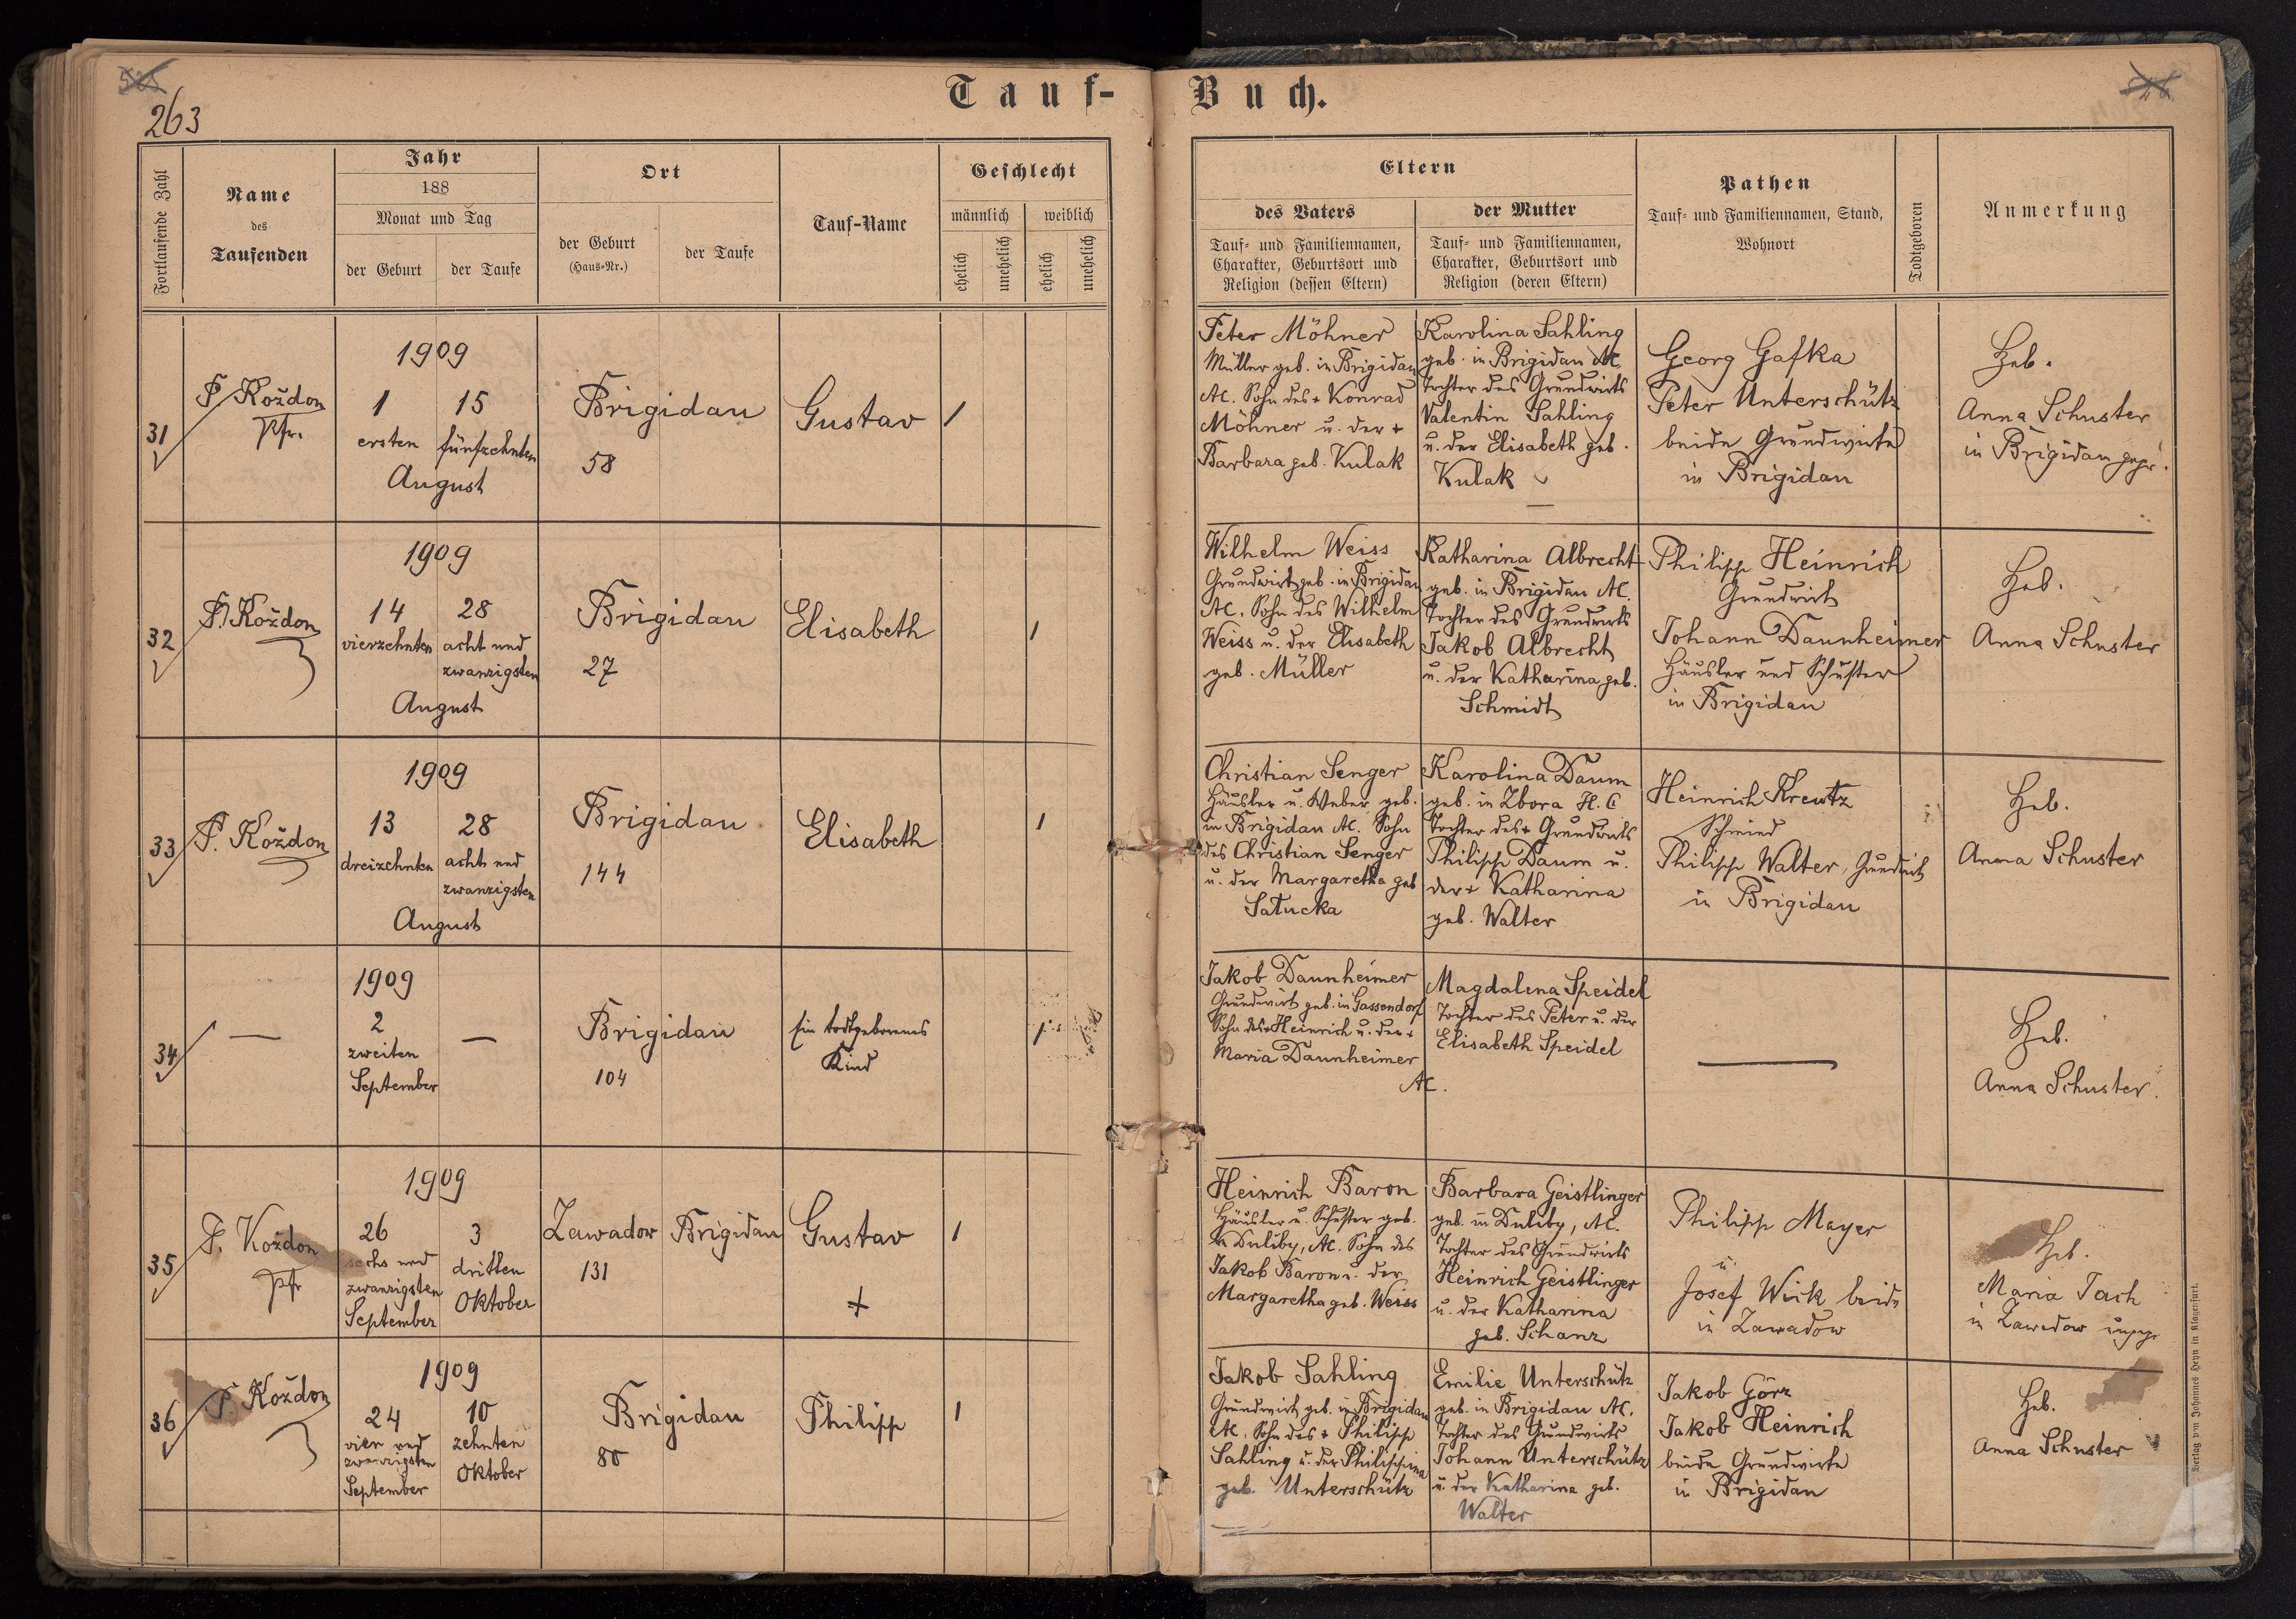 Tauf-Buch.
263
Fortlaufende Zahl
Name
des
Taufenden
Jahr
188
Monat und Tag
der Geburt
der Taufe
Ort
der Geburt
(Haus-Nr.)
der Taufe
Tauf-Name
Geschlecht
männlich
weiblich
ehelich
unehelich
ehelich
unehelich
Eltern
des Vaters
Tauf- und Familiennamen,
Charakter, Geburtsort und
Religion (dessen Eltern)
der Mutter
Tauf- und Familiennamen,
Charakter, Geburtsort und
Religion (deren Eltern)
Pathen
Tauf- und Familiennamen, Stand,
Wohnort
Todtgeboren
Anmerkung
31
P. Koždon
Pfr.
1909
1
ersten
15
fünfzehnten
August
Brigidau
58
Gustav
1
Peter Möhner
Müller geb. in Brigidau
AC. Sohn des + Konrad
Möhner u. der +
Barbara geb. Kulak
Karolina Sahling
geb. in Brigidau AC
Tochter des Grundwirts
Valentin Sahling
u. der Elisabeth geb.
Kulak
Georg Gafka
Peter Unterschütz
beide Grundwirte
in Brigidau
Heb.
Anna Schuster
in Brigidau gepr.
32
P. Koždon
1909
14
vierzehnten
28
acht und
zwanzigsten
August
Brigidau
27
Elisabeth
1
Wilhelm Weiss
Grundwirt geb. in Brigidau
AC. Sohn des Wilhelm
Weiss u. der Elisabeth
geb. Müller
Katharina Albrecht
geb. in Brigidau AC.
Tochter des Grundwirts
Jakob Albrecht
u. der Katharina geb.
Schmidt
Philipp Heinrich
Grundwirt
Johann Daunheimer
Häusler und Schuster
in Brigidau
Heb.
Anna Schuster
33
P. Koždon
1909
13
dreizehnten
28
acht und
zwanzigsten
August
Brigidau
144
Elisabeth
1
Christian Senger
Häusler u. Weber geb.
in Brigidau AC. Sohn
des Christian Senger
u. der Margaretha geb
Satucka
Karolina Daum
geb. in Zbora H.C
Tochter des + Grundwirts
Philipp Daum u.
der + Katharina
geb. Walter
Heinrich Kreutz
Schmied
Philipp Walter, Grundwirt
in Brigidau
Heb.
Anna Schuster
34
—
1909
2
zweiten
September
—
Brigidau
104
Ein todtgeborenes
Kind
1
Jakob Daunheimer
Grundwirt geb. in Gassendorf
Sohn des + Heinrich u. der +
Maria Daunheimer
AC.
Magdalena Speidel
Tochter des Peter u. der
Elisabeth Speidel
—
Heb.
Anna Schuster.
35
P. Koždon
Pfr
1909
26
sechs und
zwanzigsten
September
3
dritten
Oktober
Zawadow
131
Brigidau
Gustav
+
1
Heinrich Baron
Häusler u. Schuster geb.
in Duliby, AC. Sohn des
Jakob Baron u. der
Margaretha geb. Weiss
Barbara Geistlinger
geb. in Duliby, AC.
Tochter des Grundwirts
Heinrich Geistlinger
u. der Katharina
geb. Schanz
Philipp Mayer
u
Josef Wick beide
in Zawadow
Heb.
Maria Tach
in Zawadow ungepr
36
P. Koždon
1909
24
vier und
zwanzigsten
September
10
zehnten
Oktober
Brigidau
80
Philipp
1
Jakob Sahling
Grundwirt geb. in Brigidau
AC. Sohn des + Philipp
Sahling u. der Philippina
geb. Unterschütz
Emilie Unterschütz
geb. in Brigidau AC.
Tochter des Grundwirts
Johann Unterschütz
u. der Katharina geb.
Walter
Jakob Görz
Jakob Heinrich
beide Grundwirte
in Brigidau
Heb.
Anna Schuster
Verlag von Johannes Heyn in Klagenfurt.